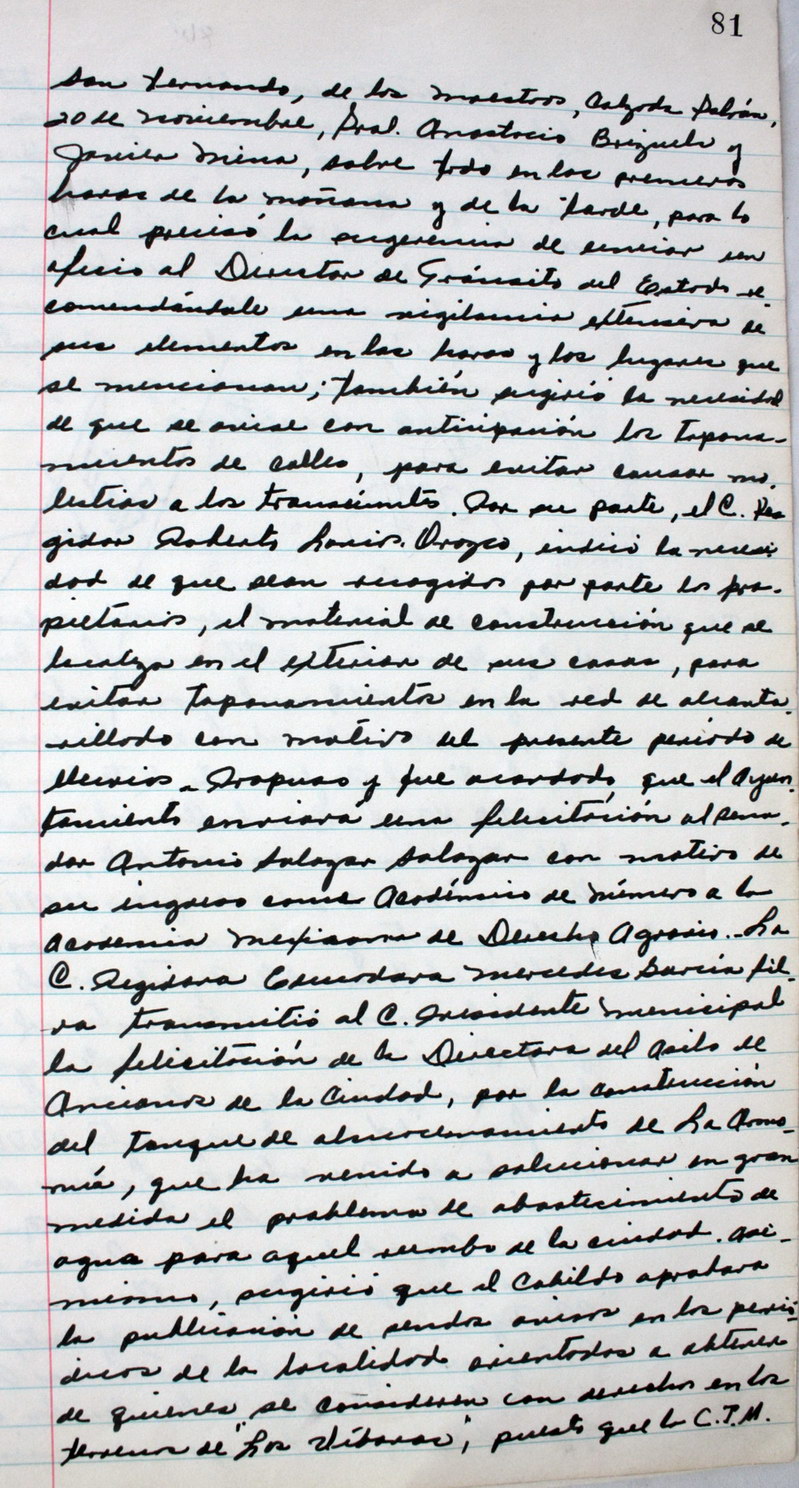 81
San Fernando, de los Maestros, Calzada Galván,
20 de Noviembre, Gral. Anastacio Brizuela y
Javier Mina, sobre todo en las primeras
horas de la mañana y de la tarde, para lo
cual precisó la sugerencia de enviar un
oficio al Director de Tránsito del Estado re-
comendándole una vigilancia extensiva de
sus elementos en las horas y los lugares que
se mencionan; también sugirió la necesidad
de que se avise con anticipación los tapona-
mientos de calles, para evitar causar mo-
lestias a los transeúntes. Por su parte, el C. Re
gidor Roberto Larios Orozco, indicó la necesi
dad de que sean recogidos por parte los pro-
pietarios, el material de construcción que se
localiza en el exterior de sus casas, para
evitar taponamientos en la red de alcanta-
rillado con motivo del presente período de
lluvias. Propuso y fue acordado, que el Ayun-
tamiento enviará una felicitación al Sena-
dor Antonio Salazar Salazar con motivo de
su ingreso como Académico de Número a la
Academia Mexicana de Derecho Agrario. La
C. Regidora Mercedes García
ra transmitió al C. Presidente Municipal
la felicitación de la Directora del Asilo de
Ancianos de la Ciudad, por la construcción
del tanque de almacenamiento de La Armo-
nía, que ha venido a solucionar en gran
medida el problema de abastecimiento de
agua para aquel rumbo de la ciudad. Asi-
mismo, sugirió que el Cabildo aprobara
la publicación de sendos avisos en los perió-
dicos de la localidad orientados a obtener
de quienes se consideren con derechos en los
terrenos de "Los Víboras", puesto que la C.T.M.